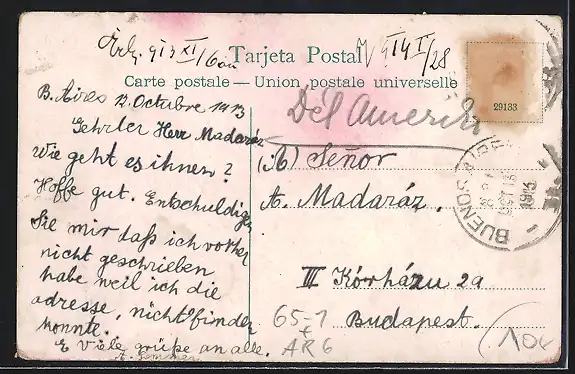 Erh. 913 XI/6án
V 914 I/28
Tarjeta Postal
Carte postale — Union postale universelle
29133
B. Aires 12. Octubre 1913
Gehrter Herr Madaráz
Wie geht es ihnen?
Hoffe gut. Entschuldigen
Sie mir daß ich vorher
nicht geschrieben
habe weil ich die
adresse, nicht finden
konnte.
E viele grüße an alle.
Del Amerika
(A) Señor
A. Madaráz.
III Kórházu 2a
Budapest.
BUENOS AIRES
1913
65-1
AR6
10.-